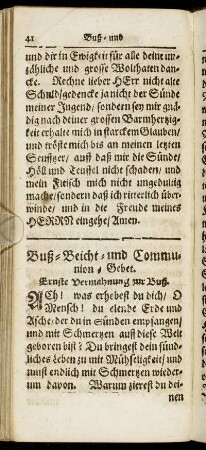 42 Buß- und
und dir in Ewigkeit für alle deine un-
zähliche und grosse Wolthaten dan-
cke. Rechne lieber HErr nicht alte
Schuld/gedencke ja nicht der Sünde
meiner Jugend/ sondern sey mir gnä-
dig nach deiner grossen Barmhertzig-
keit erhalte mich in starckem Glauben/
und tröste mich bis an meinen letzten
Seufftzer/ auff daß mir die Sünde/
Höll und Teuffel nicht schaden/ und
mein Fleisch mich nicht ungedultig
mache/sondern daß ich ritterlich über-
winde/ und in die Freude meines
HERRN eingehe/ Amen.
Buß-Beicht-und Commu-
nion-Gebet.
Ernste Vermahnung zur Buß.
ACh! was erhebest du dich/ O
Mensch! du elende Erde und
Asche/ der du in Sünden empfangen/
und mit Schmertzen auff diese Welt
geboren bist? Du bringest dein sünd-
liches Leben zu mit Mühseligkeit/ und
must endlich mit Schmertzen wieder-
um davon. Warum zierest du dei-
nen